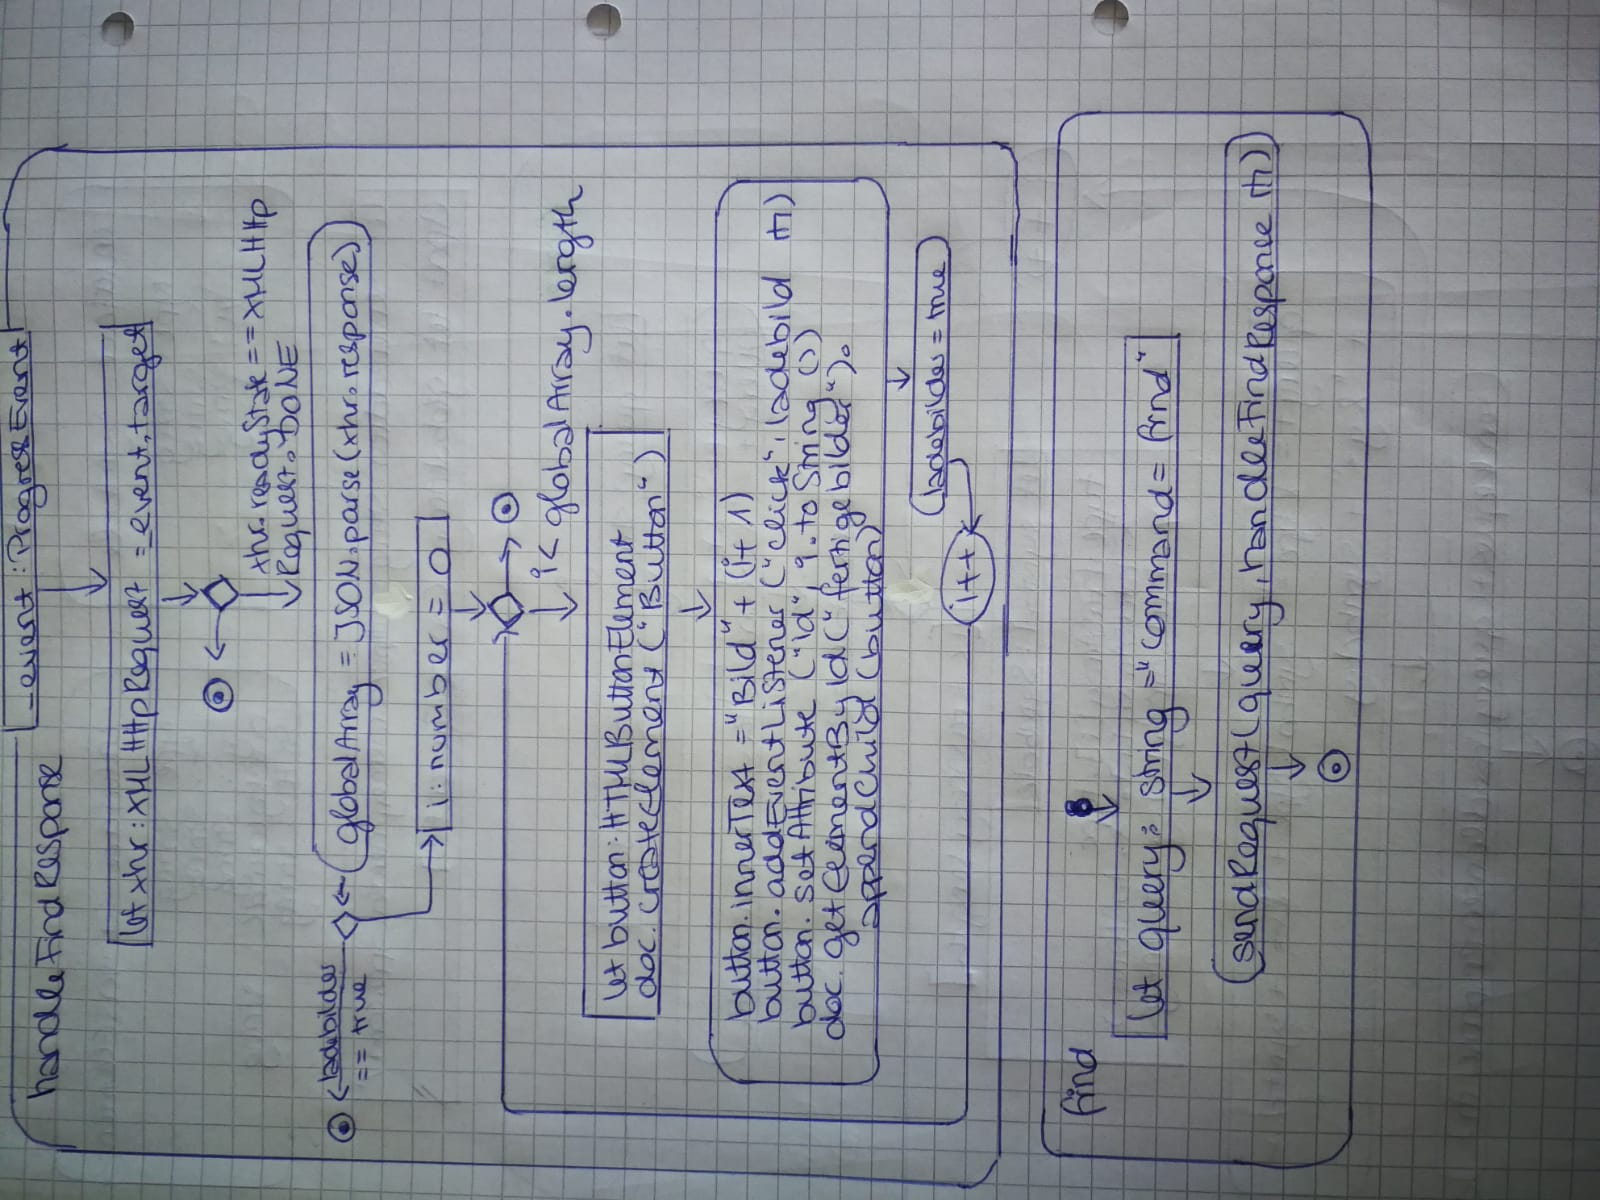 handleFindResponse
_event: ProgressEvent
let xhr: XMLHttpRequest = _event.target
xhr.readyState == XMLHttp
Request.DONE
globalArray = JSON.parse(xhr.response)
ladebilder
== true
i: number = 0
i < globalArray.length
let button: HTMLButtonElement
doc.createElement("Button")
button.innerText = "Bild" + (i+1)
button.addEventListener("click", ladebild
button.setAttribute("id", i.toString())
doc.getElementById("fertigebilder").
appendChild(button)
ladebilder = true
i++
find
let query: String = "command=find"
sendRequest(query, handleFindResponse